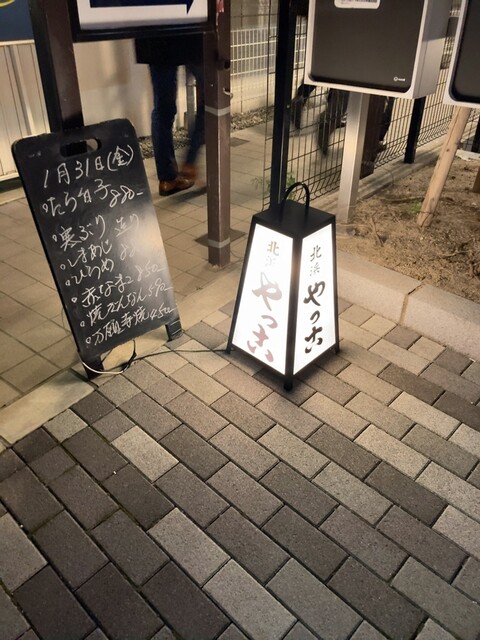 1月31日(金)
・たら白子 880-
・寒ぶり 造り
・しまあじ
・ひらめ
・赤なまこ 850
・焼だんなん 590
・万願寺焼 450
北浜
やっこ
北浜
やっこ